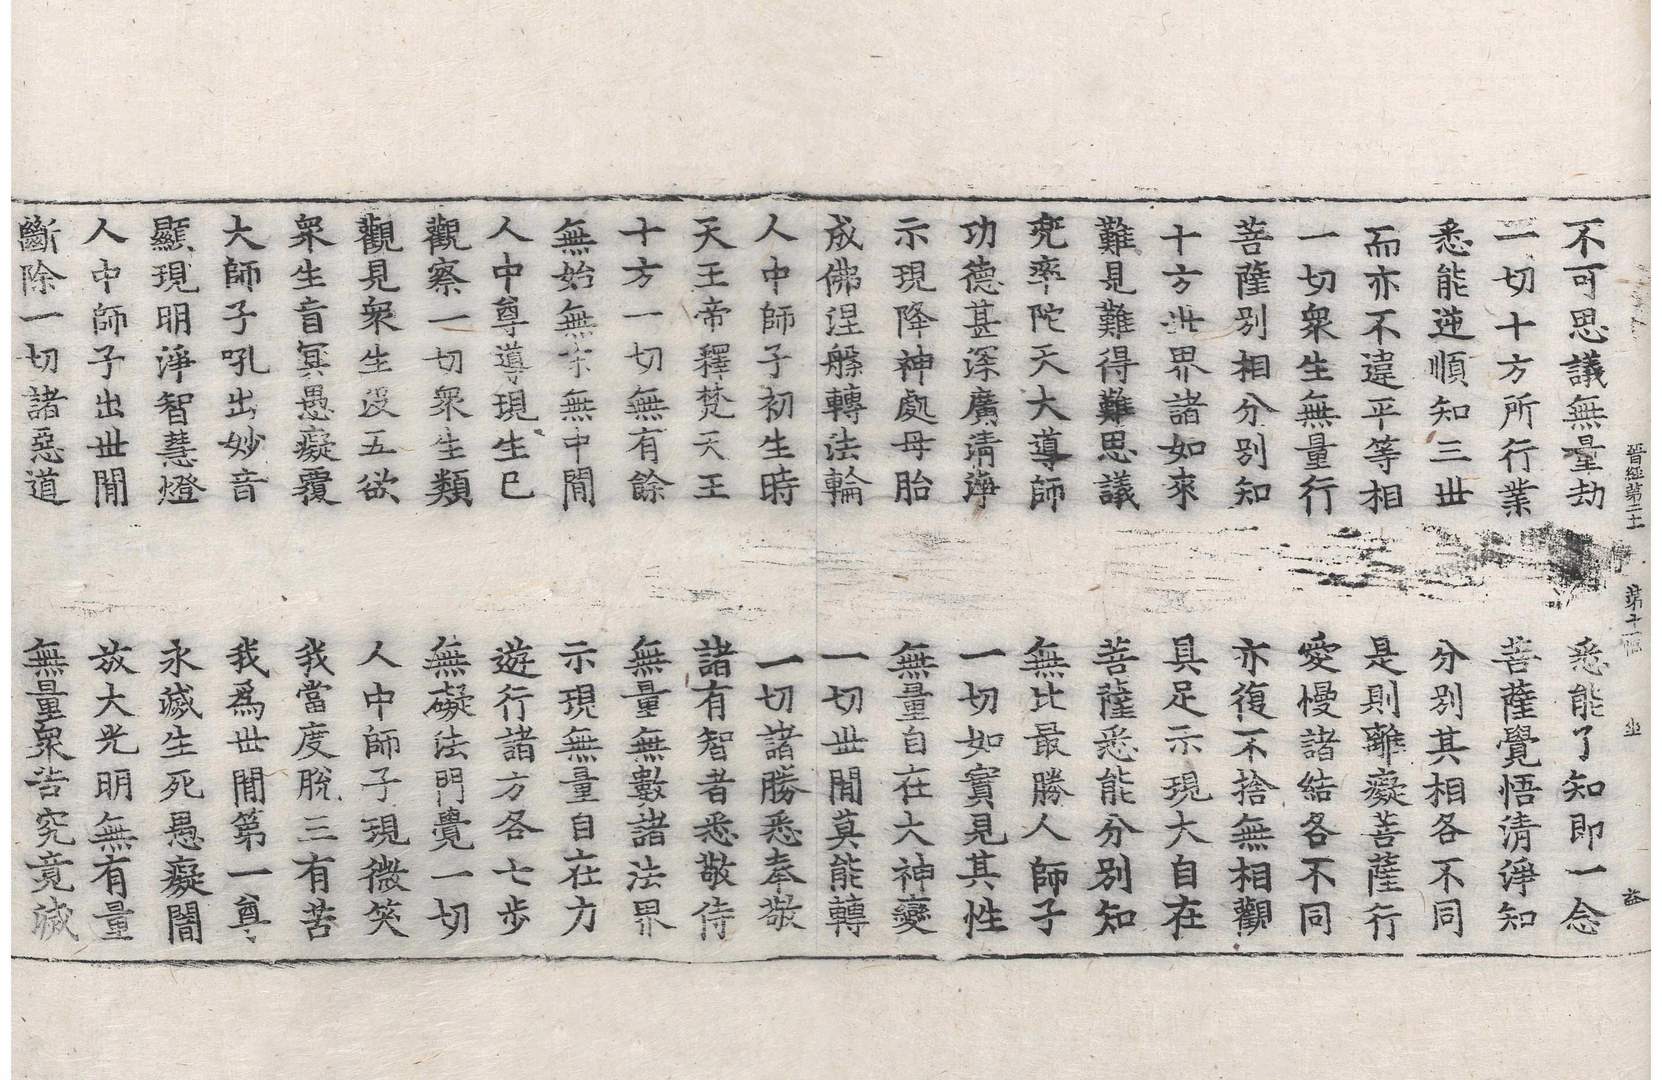 晉經第 第十
不可思議無量劫 悉能了知即一念
一切十方所行業 菩薩覺悟清淨知
悉能逆順知三世 分別其相各不同
而亦不違平等相 是則離癡菩薩行
一切衆生無量行 愛慢諸結各不同
菩薩別相分別知 亦復不捨無相觀
十方世界諸如來 具足示現大自在
難見難得難思議 菩薩悉能分別知
兜率陀天大導師 無比最勝人師子
功德甚深廣清淨 一切如實見其性
示現降神處母胎 無量自在大神變
成佛涅槃轉法輪 一切世間莫能轉
人中師子初生時 一切諸勝悉奉敬
天王帝釋梵天王 諸有智者悉敬侍
十方一切無有餘 無量無數諸法界
無始無末無中間 示現無量自在力
人中尊導現生已 遊行諸方各七步
觀察一切衆生類 無礙法門覺一切
觀見衆生沒五欲 人中師子現微笑
衆生盲冥愚癡覆 我當度脫三有苦
大師子吼出妙音 我爲世間第一尊
顯現明淨智慧燈 永滅生死愚癡闇
人中師子出世間 放大光明無有量
斷除一切諸惡道 無量衆苦究竟滅